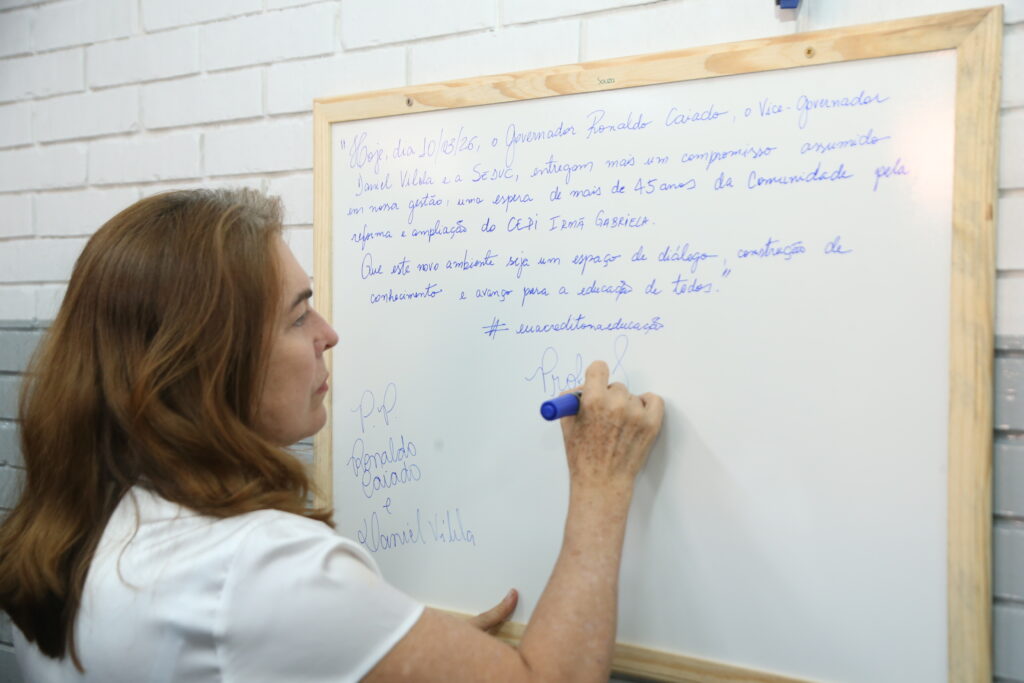 Souza
"Hoje, dia 10/03/26, o Governador Ronaldo Caiado, o Vice-Governador
Daniel Vilela e a SEDUC, entregam mais um compromisso assumido
em nossa gestão, uma espera de mais de 45 anos da Comunidade pela
reforma e ampliação do CEPI IRMÃ GABRIELA.
Que este novo ambiente seja um espaço de diálogo, construção de
conhecimento e avanço para a educação de todos."
# euacreditonaeducação
P.P.
Ronaldo
Caiado
e
Daniel Vilela